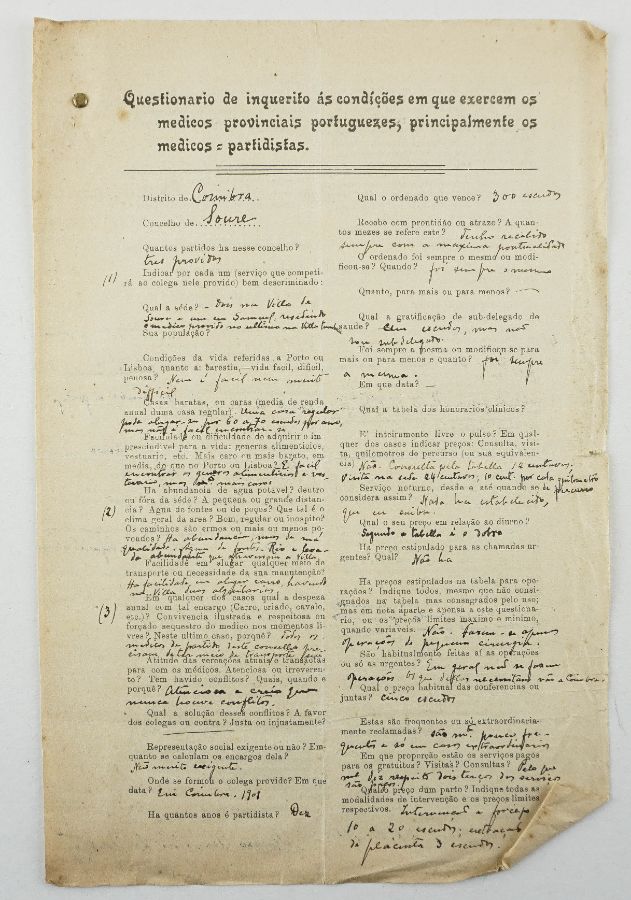 Questionario de inquerito ás condições em que exercem os
medicos provinciais portuguezes, principalmente os
medicos = partidistas.
Districto de Coimbra
Concelho de Soure
Quantos partidos ha nesse concelho?
tres providos
(1) Indicar por cada um (serviço que competi-
rá ao colega nele provido) bem descriminado:
Qual a séde? - Dois na Villa de
Soure e um em Samuel, residindo
o medico provido no ultimo na Villa
Sua população?
Condições da vida referidas a Porto ou
Lisboa, quanto á: barestia,—vida facil, dificil,
penosa? Nem é facil nem muito
difficil
Casas baratas, ou caras (media de renda
anual duma casa regular) Uma casa regular
pode alugar-se por 60 a 70 escudos por anno,
mas não é facil encontrar-se
Faculdade ou dificuldade de adquirir o im-
prescindivel para a vida: generos alimenticios,
vestuario, etc. Mais caro ou mais barato, em
media, do que no Porto ou Lisboa? É facil
encontrar os generos alimenticios e ves-
tuario, mas são mais caros
Ha abundancia de agua potavel? dentro
ou fóra da séde? A pequena ou grande distan-
(2) cia? Agua de fontes ou de poços? Que tal é o
clima geral da area? Bom, regular ou inospito?
Os caminhos são ermos ou mais ou menos po-
voados? Ha abundancia, mas de má
qualidade. Agua de fonte. Rio e
Facilidade em alugar qualquer meio de
transporte ou necessidade da sua manutenção?
Ha facilidade em alugar carro, havendo
na Villa duas alquilarias.
(3) Em qualquer dos casos qual a despeza
anual com tal encargo (Carro, criado, cavalo,
etc.)? Convivencia ilustrada e respeitosa ou
forçado sequestro do medico nos momentos li-
vres? Neste ultimo caso, porquê? Todos os
medicos de partido deste concelho pre-
cisam de ter meio de transporte
Atitude das vereações atuais e transactas
para com os medicos. Atenciosa ou irreveren-
te? Tem havido conflitos? Quais, quando e
porquê? Atenciosa e creio que
nunca houve conflitos.
Qual a solução desses conflitos? A favor
dos colegas ou contra? Justa ou injustamente?
Representação social exigente ou não? Em
quanto se calculam os encargos dela?
Não muito exigente.
Onde se formou o colega provido? Em que
data? Em Coimbra, 1901
Ha quantos anos é partidista? Dez
Qual o ordenado que vence? 300 escudos
Recebe com prontidão ou atrazo? A quan-
tos mezes se refere este? Tenho recebido
sempre com a maxima pontualidade
O ordenado foi sempre o mesmo ou modi-
ficou-se? Quando? foi sempre o mesmo
Quanto, para mais ou para menos? —
Qual a gratificação de sub-delegado de
saude? Cem escudos, mas não
sou sub-delegado.
Foi sempre a mesma ou modificou-se para
mais ou para menos e quanto? foi sempre
a mesma.
Em que data? —
Qual a tabela dos honorarios clinicos?
E' inteiramente livre o pulso? Em qual-
quer dos casos indicar preços: Consulta, visi-
ta, quilometros de percurso (ou sua equivalen-
cia) Não. Consulta pela tabella 12 centavos.
Visita na séde 24 centavos; 10 cent. por cada quilometro
percurso
Serviço noturno, desde e até quando se de
considera assim? Nada ha estabelecido,
que eu saiba.
Qual o seu preço em relação ao diurno?
Segundo a tabella é o dobro
Ha preço estipulado para as chamadas ur-
gentes? Qual? Não ha
Ha preços estipulados na tabela para ope-
rações? Indique todos, mesmo que não consi-
gnados na tabela mas consagrados pelo uso,
mas em nota aparte e apensa a este questiona-
rio, ou os preços limites maximo e minimo,
quando variaveis. Não. Fazem-se apenas
operações de pequena cirurgia.
São habitualmente feitas ai as operações
ou só as urgentes? Em geral não se fazem
operações (os que dellas necessitam vão a Coimbra.
Qual o preço habitual das conferencias ou
juntas? Cinco escudos
Estas são frequentes ou só extraordinaria-
mente reclamadas? são mt. pouco fre-
quentes e só em casos extraordinarios
Em que proporção estão os serviços pagos
para os gratuitos? Visitas? Consultas? Pelo que
me diz respeito dois terços dos serviços
são
Qual o preço dum parto? Indique todas as
modalidades de intervenção e os preços limites
respectivos. Intervenção a forceps
10 a 20 escudos; extracção
da placenta 3 escudos.